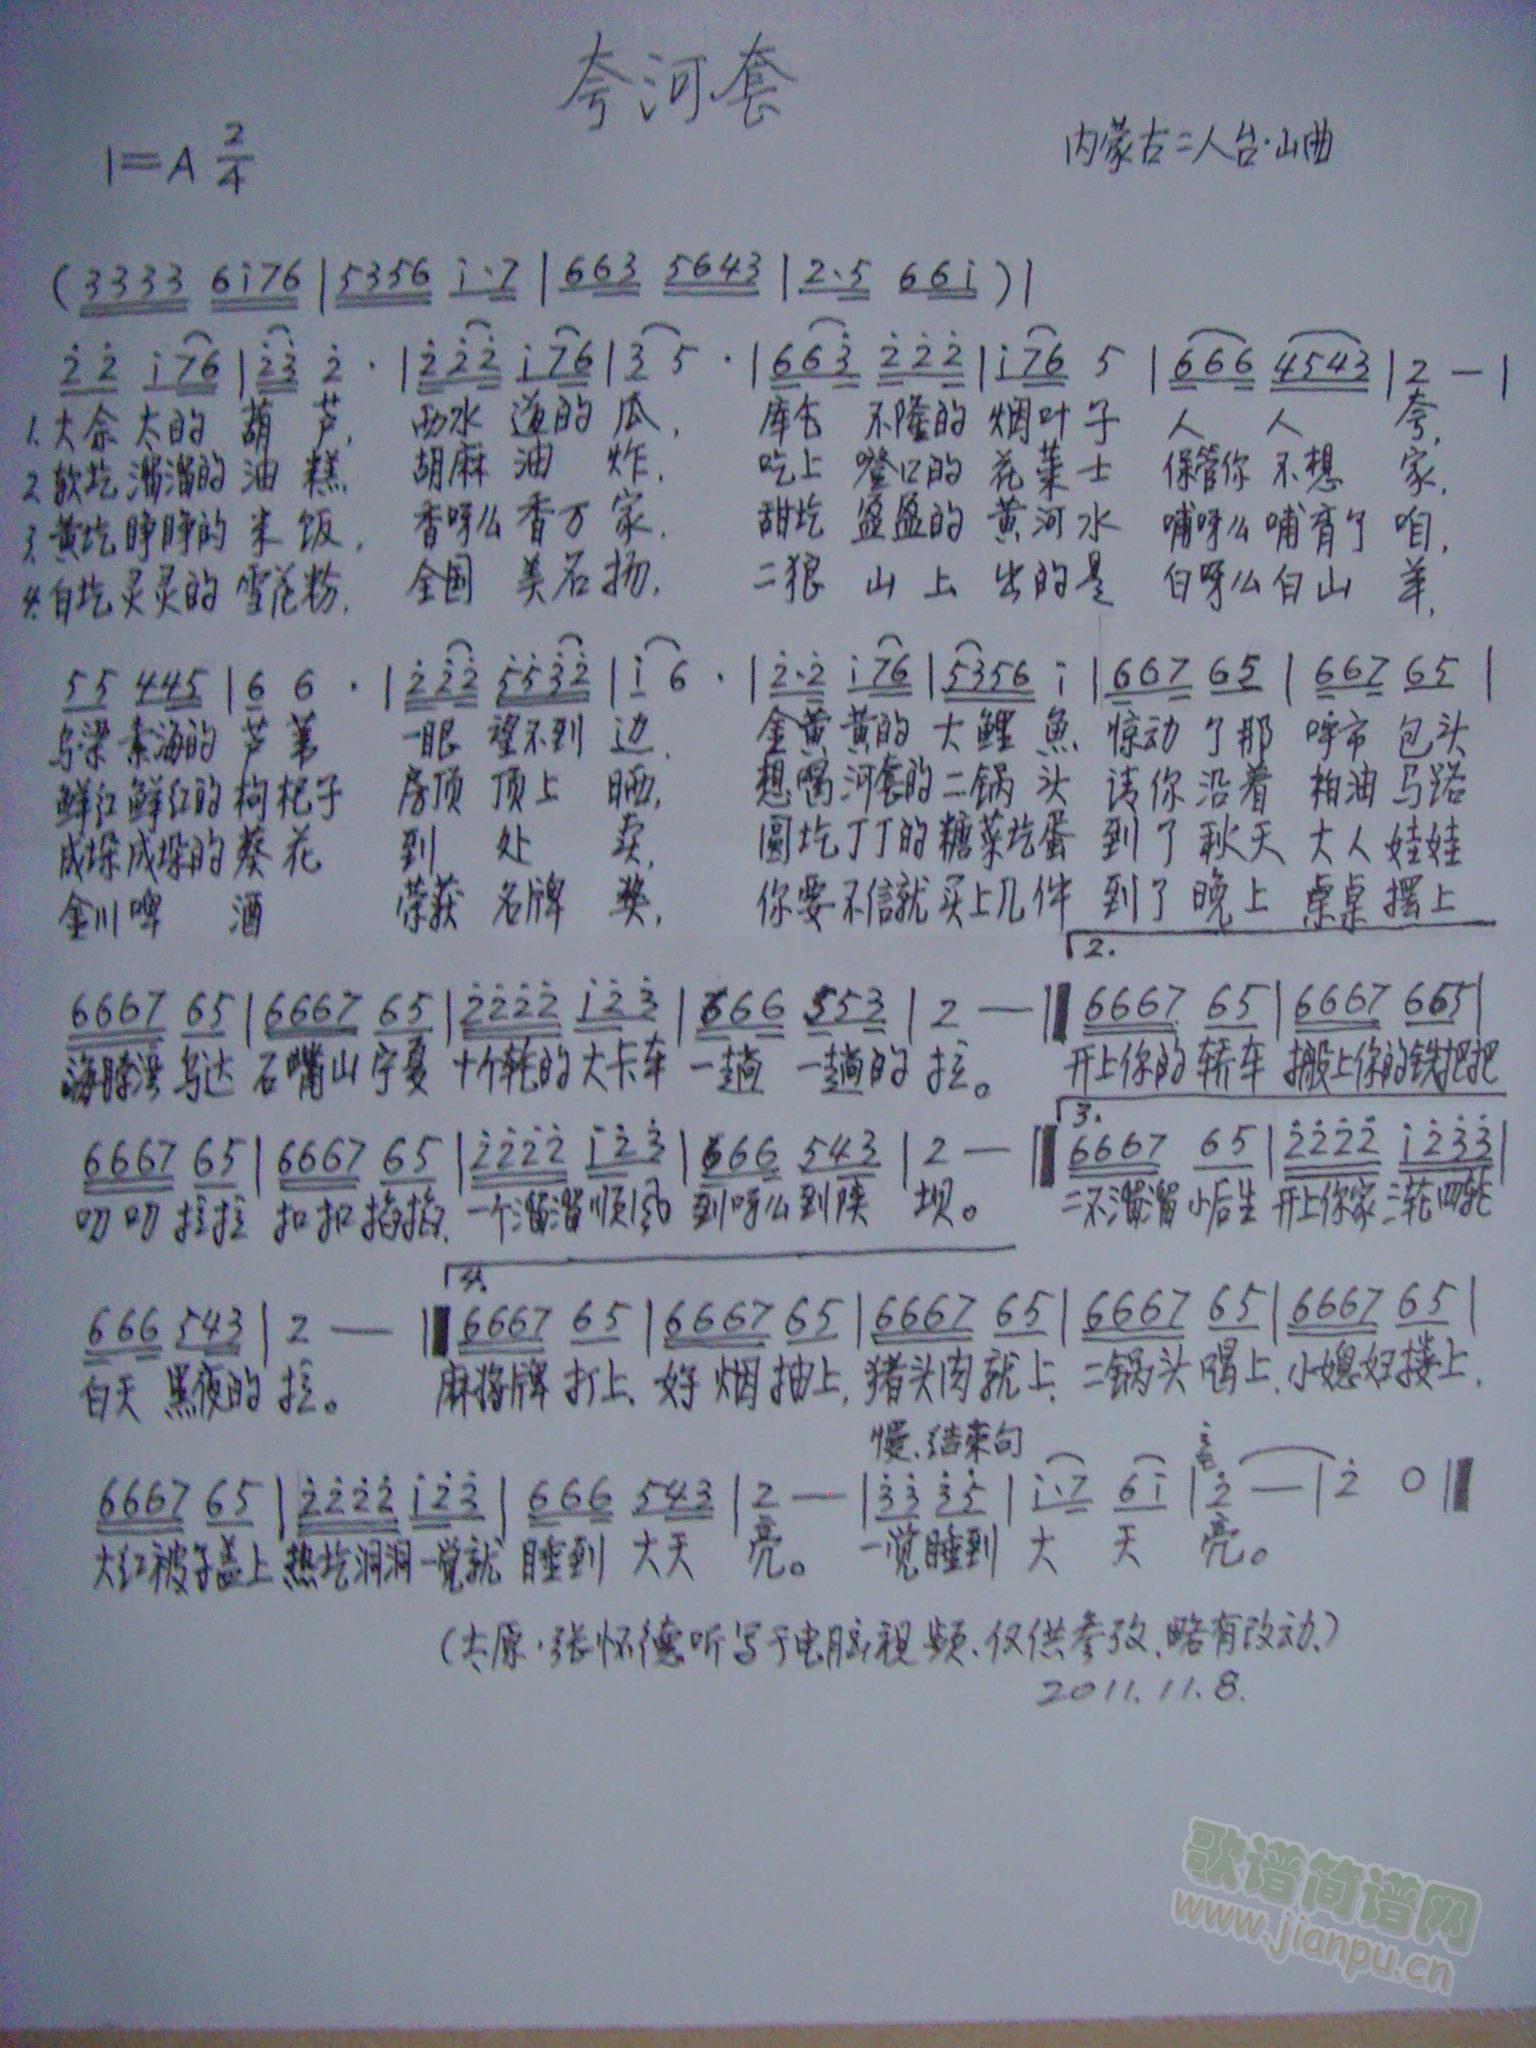 夸河套
1=A 2/4
内蒙古二人台·山曲
(3333 6i76|5356 i·7|663 5643|2·5 66i)|
22 i76|23 2·|222 i76|35·|663 222|i76 5|666 4543|2—|
1.大佘太的葫芦, 西水道的瓜, 库仑不隆的烟叶子人人夸,
2.软圪溜溜的油糕 胡麻油炸, 吃上噔口的花莱士保管你不想家,
3.黄圪睁睁的米饭, 香呀么香万家, 甜圪盈盈的黄河水哺呀么哺育了咱,
4.白圪灵灵的雪花粉, 全国美名扬, 二狼山上出的是白呀么白山羊,
55 445|6 6·|222 5532|i6·|2·2 i76|5356 i|667 65|667 65|
乌梁素海的芦苇一眼望不到边, 金黄黄的大鲤魚惊动了那呼市包头
鲜红鲜红的枸杞子房顶顶上晒, 想喝河套的二锅头请你沿着柏油马路
成垛成垛的葵花到处卖, 圆圪丁丁的糖菜圪蛋到了秋天大人娃娃
金川啤酒荣获名牌奖, 你要不信就买上几件到了晚上桌桌摆上
2.
6667 65|6667 65|2222 i23|666 553|2—‖6667 65|6667 665|
海勃湾乌达石嘴山宁夏十个轮的大卡车一趟一趟的拉。 开上你的轿车搬上你的铁把把
3.
6667 65|6667 65|2222 i23|666 543|2—‖6667 65|2222 i233|
叨叨拉拉扣扣掐掐, 一个溜溜顺风到呀么到陕坝。 二不溜溜小后生开上你家三轮四轮
4.
666 543|2—‖6667 65|6667 65|6667 65|6667 65|6667 65|
白天黑夜的拉。 麻将牌打上、好烟抽上,猪头肉就上、二锅头喝上、小媳妇搂上,
慢、结束句
6667 65|2222 i23|666 543|2—|33 35|i·7 6i|2—|2 0‖
大红被子盖上热圪洞洞一觉就睡到大天亮。 一觉睡到大天亮。
(太原·张怀德听写于电脑视频、仅供参考、略有改动、)
2011.11.8.
歌谱简谱网
www.jianpu.cn